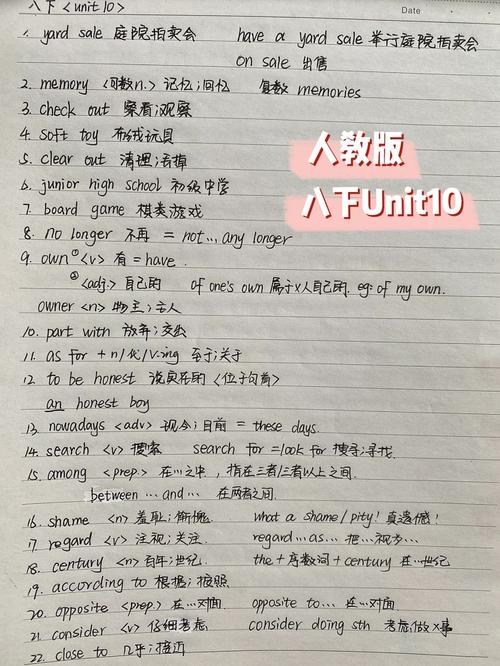 八下 <unit 10>
Date
1. yard sale 庭院拍卖会 have a yard sale 举行庭院拍卖会
on sale 出售
2. memory <可数n.> 记忆;回忆 复数 memories
3. check out 察看;观察
4. soft toy 布绒玩具
5. clear out 清理;丢掉
6. junior high school 初级中学
7. board game 棋类游戏
8. no longer 不再 = not...any longer
9. own ①<v> 有 = have.
②<adj.> 自己的 of one's own 属于某人自己的. eg: of my own.
owner <n> 物主;主人
10. part with 放弃;交出
11. as for + n/代/v-ing 至于;关于
12. to be honest 说实在的 <位于句首>
an honest boy
13. nowadays <adv> 现今;目前 = these days.
14. search <v> 搜索 search for =look for 搜寻;寻找.
15. among <prep.> 在...之中, 指在三者/三者以上之间.
between ... and ... 在两者之间.
16. shame <n> 羞耻;惭愧 what a shame/pity! 真遗憾!
17. regard <v> 注视;关注. regard...as... 把...视为...
18. century <n> 百年;世纪 the + 序数词 + century 在...世纪
19. according to 根据;按照
20. opposite <prep.> 在...对面 opposite to... 在...对面
21. consider <v> 仔细考虑 consider doing sth 考虑做某事
22. close to 几乎;接近
人教版
八下Unit10